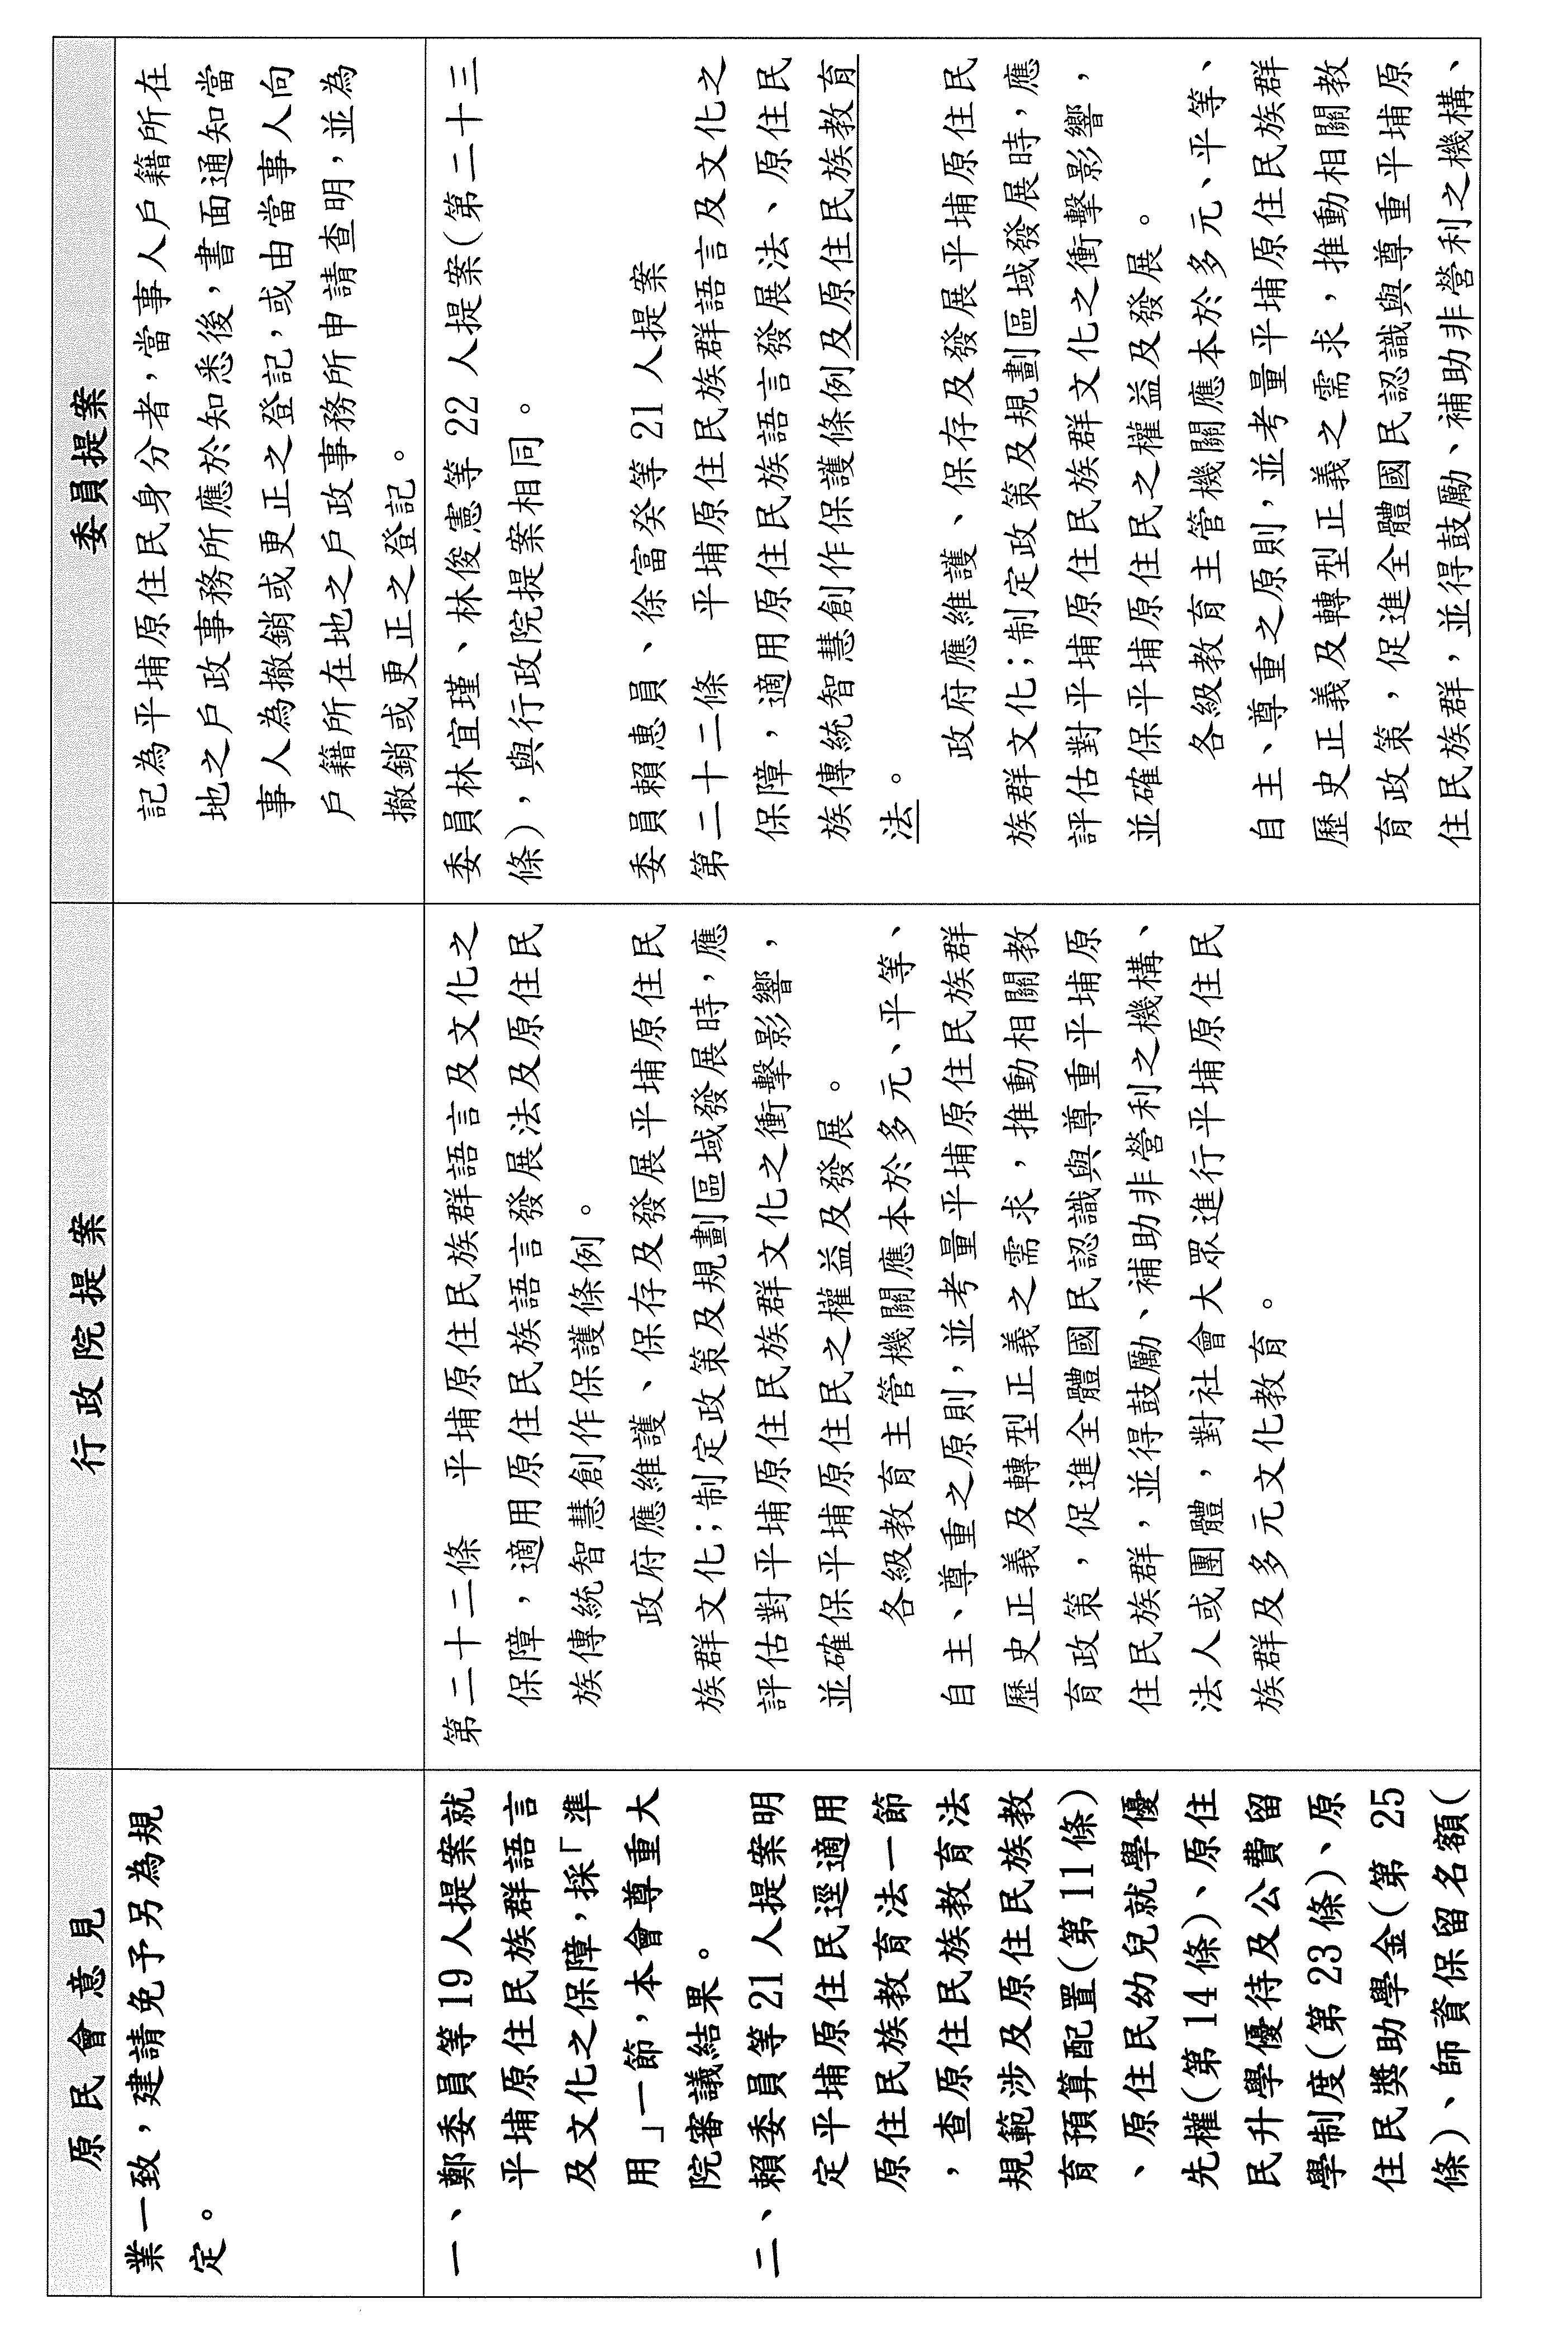 原民會意見
行政院提案
委員提案
業一致，建請免予另為規
定。
記為平埔原住民身分者，當事人戶籍所在
地之戶政事務所應於知悉後，書面通知當
事人為撤銷或更正之登記，或由當事人向
戶籍所在地之戶政事務所申請查明，並為
撤銷或更正之登記。
一、鄭委員等19人提案就
平埔原住民族群語言
及文化之保障，採「準
用」一節，本會尊重大
院審議結果。
二、賴委員等21人提案明
定平埔原住民逕適用
原住民族教育法一節
，查原住民族教育法
規範涉及原住民族教
育預算配置(第11條)
、原住民幼兒就學優
先權(第14條)、原住
民升學優待及公費留
學制度(第23條)、原
住民獎助學金(第25
條)、師資保留名額(
第二十二條　平埔原住民族群語言及文化之
保障，適用原住民族語言發展法及原住民
族傳統智慧創作保護條例。
政府應維護、保存及發展平埔原住民
族群文化；制定政策及規劃區域發展時，應
評估對平埔原住民族群文化之衝擊影響，
並確保平埔原住民之權益及發展。
各級教育主管機關應本於多元、平等、
自主、尊重之原則，並考量平埔原住民族群
歷史正義及轉型正義之需求，推動相關教
育政策，促進全體國民認識與尊重平埔原
住民族群，並得鼓勵、補助非營利之機構、
法人或團體，對社會大眾進行平埔原住民
族群及多元文化教育。
委員林宜瑾、林俊憲等22人提案(第二十三
條)，與行政院提案相同。
委員賴惠員、徐富癸等21人提案
第二十二條　平埔原住民族群語言及文化之
保障，適用原住民族語言發展法、原住民
族傳統智慧創作保護條例及原住民族教育
法。
政府應維護、保存及發展平埔原住民
族群文化；制定政策及規劃區域發展時，應
評估對平埔原住民族群文化之衝擊影響，
並確保平埔原住民之權益及發展。
各級教育主管機關應本於多元、平等、
自主、尊重之原則，並考量平埔原住民族群
歷史正義及轉型正義之需求，推動相關教
育政策，促進全體國民認識與尊重平埔原
住民族群，並得鼓勵、補助非營利之機構、